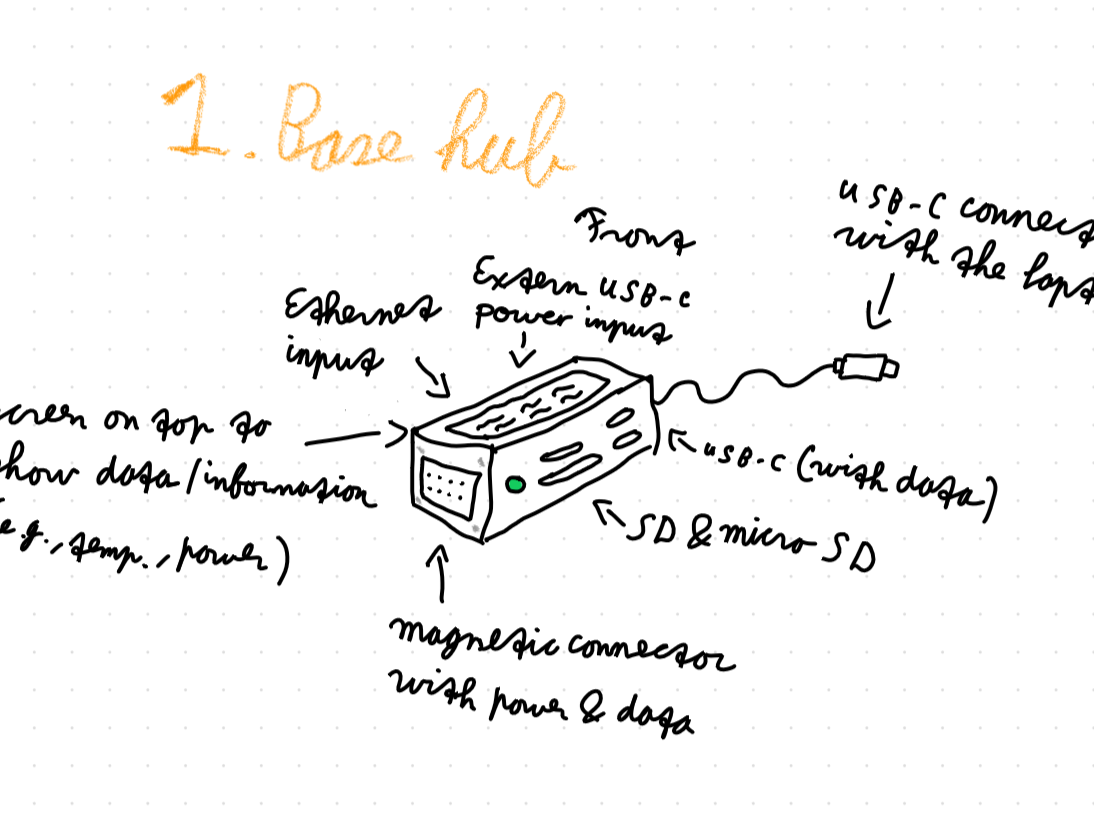 1. Base hub
Front
USB-C connect
with the lapt
Extern USB-C
power input
Ethernet
input
creen on top to
how data/information
e.g., temp., power)
USB-C (with data)
SD & micro SD
magnetic connector
with power & data